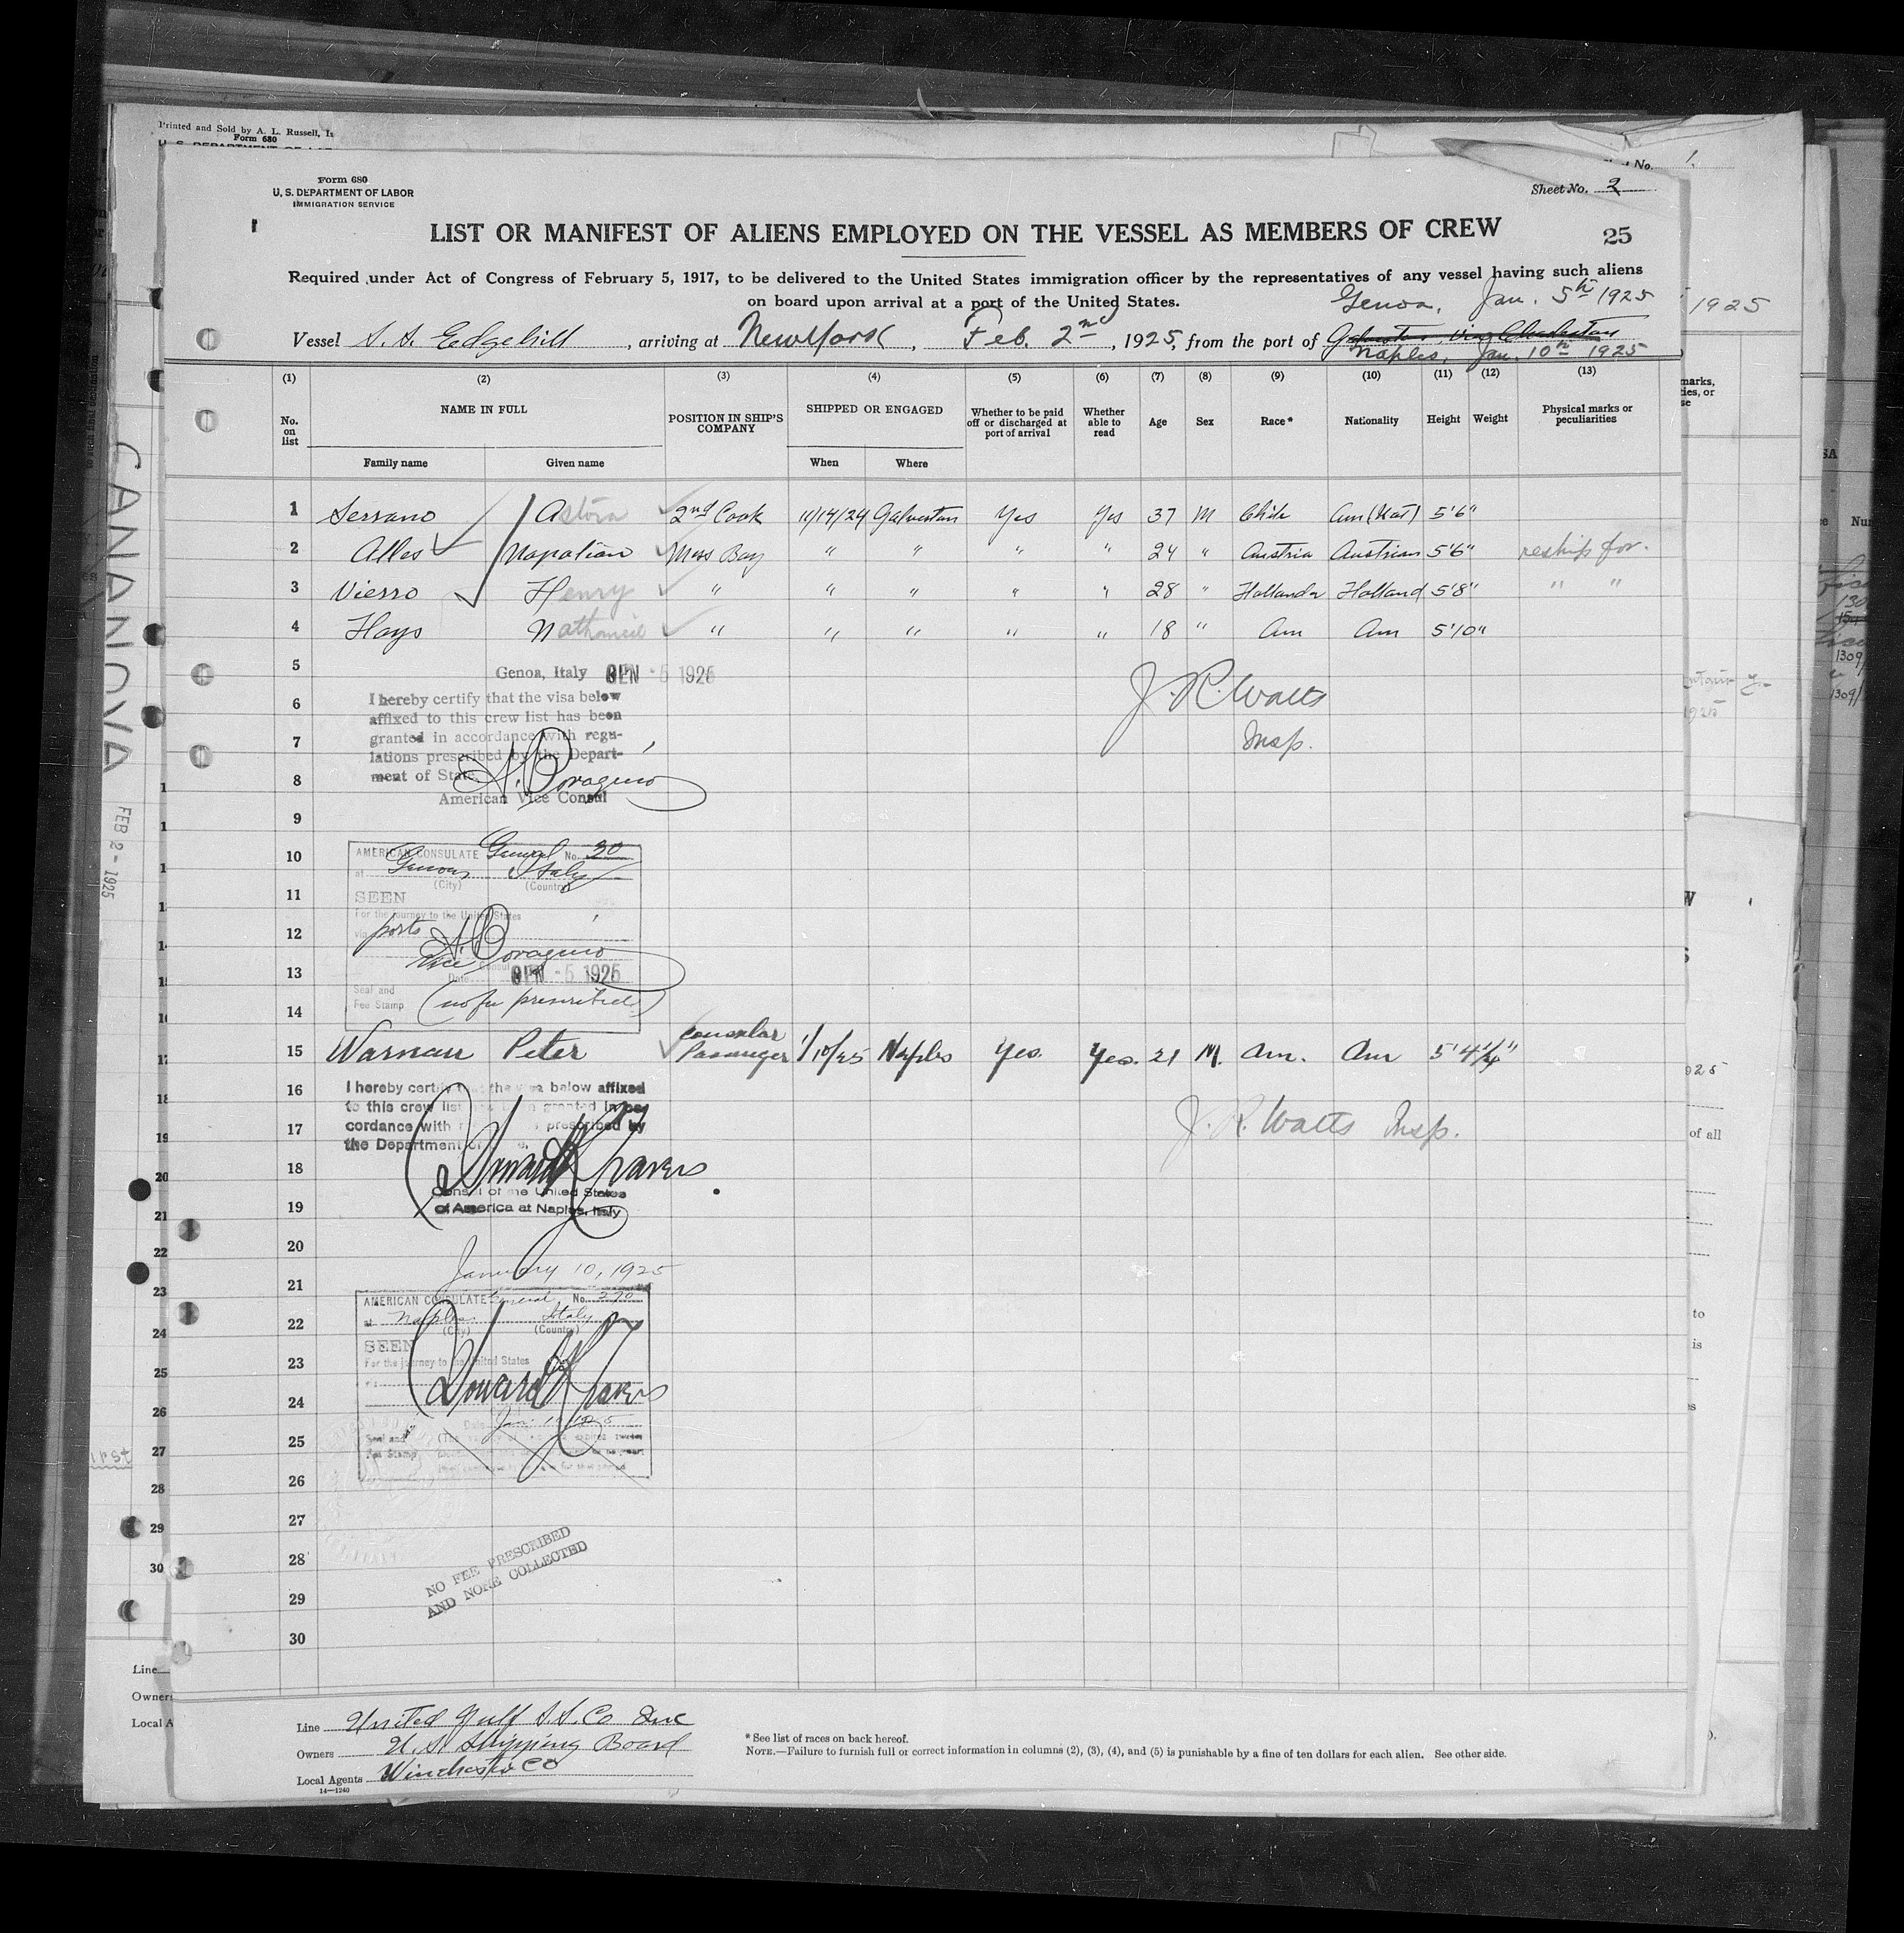 Printed and Sold by A. L. Russell,
Form 680
No. 1.
Form 680
U. S. DEPARTMENT OF LABOR
IMMIGRATION SERVICE
Sheet No. 2
LIST OR MANIFEST OF ALIENS EMPLOYED ON THE VESSEL AS MEMBERS OF CREW
25
Required under Act of Congress of February 5, 1917, to be delivered to the United States immigration officer by the representatives of any vessel having such aliens
on board upon arrival at a port of the United States.
Genoa, Jan. 5th 1925
1925
Vessel S. S. Edgehill, arriving at New York, Feb. 2nd, 1925, from the port of Galveston, via Charleston
Naples, Jan. 10th 1925
(1) (2) (3) (4) (5) (6) (7) (8) (9) (10) (11) (12) (13)
No. on list NAME IN FULL POSITION IN SHIP'S COMPANY SHIPPED OR ENGAGED Whether to be paid off or discharged at port of arrival Whether able to read Age Sex Race* Nationality Height Weight Physical marks or peculiarities
Family name Given name When Where
1 Serrano Astora 2nd Cook 11/14/24 Galveston Yes Yes 37 M Chile Am (Nat) 5'6"
2 Alles Napolian Mess Boy " " " " 24 " Austria Austrian 5'6" reship for.
3 Vierro Henry " " " " " 28 " Hollander Holland 5'8" " "
4 Hays Nathaniel " " " " " 18 " Am Am 5'10"
5 Genoa, Italy JAN -5 1925
6 I hereby certify that the visa below
affixed to this crew list has been
7 granted in accordance with regu-
lations prescribed by the Depart-
8 ment of State.
American Vice Consul
J. R. Watts
Insp.
9
10 AMERICAN CONSULATE General No. 30
at Genoa, Italy
(City) (Country)
11 SEEN
For the journey to the United States
12 via ports
13 Vice Consul
Date JAN -5 1925
Seal and
Fee Stamp (no fee prescribed)
14
15 Warnau Peter Consular Passenger 1/10/25 Naples Yes. Yes. 21 M. Am. Am 5'4¼"
16 I hereby certify that the visa below affixed
to this crew list has been granted in ac-
17 cordance with prescribed by
the Department of State.
J. R. Watts Insp.
18
Consul of the United States
19 of America at Naples, Italy
20
January 10, 1925
21
AMERICAN CONSULATE General No. 270
22 at Naples Italy
(City) (Country)
SEEN
23 For the journey to the United States
24
Date Jan. 10 1925
25 Seal and
Fee Stamp
26
27
28 NO FEE PRESCRIBED
AND NONE COLLECTED
29
30
Line United Gulf S. S. Co Inc
Owners U. S. Shipping Board
Local Agents Winchester Co
14—1240
* See list of races on back hereof.
NOTE.—Failure to furnish full or correct information in columns (2), (3), (4), and (5) is punishable by a fine of ten dollars for each alien. See other side.
CANANOVA
FEB 2 - 1925
Line
Owners
Local A